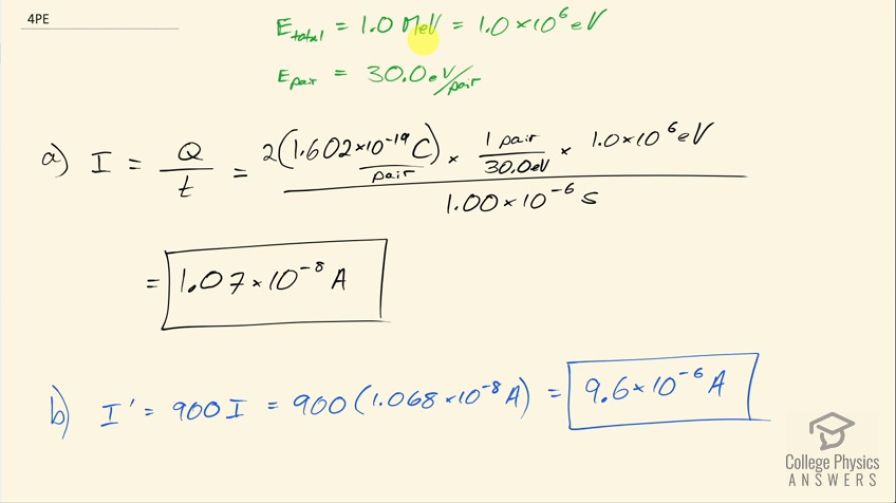 4PE
E total = 1.0 MeV = 1.0 × 10⁶ eV
E pair = 30.0 eV/pair
a) I = Q/t = (2(1.602×10⁻¹⁹ C/pair) × 1 pair/30.0eV × 1.0×10⁶ eV) / (1.00×10⁻⁶ s)
= 1.07×10⁻⁸ A
b) I' = 900 I = 900 (1.068×10⁻⁸ A) = 9.6×10⁻⁶ A
College Physics
ANSWERS